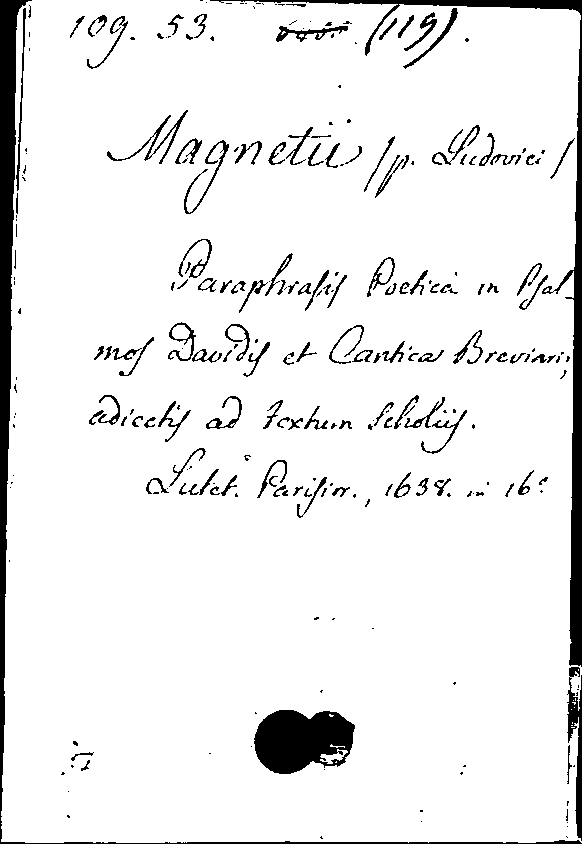 109. 53. (119).
Magnetii /p. Ludovici/
Paraphrasis Poetica in Psal-
mos Davidis et Cantica Breviarii,
adiectis ad textum scholiis.
Lutet. Parisior., 1638. in 16°